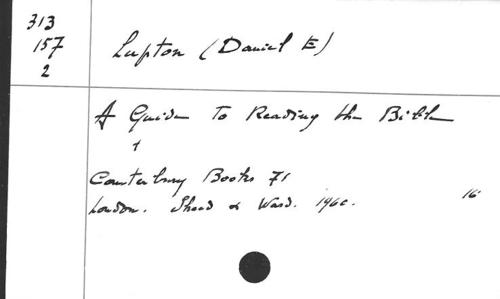 313
157
2
Lupton (Daniel E)
A Guide to Reading the Bible
+
Canterbury Books 71
London. Sheed & Ward. 1960.
16